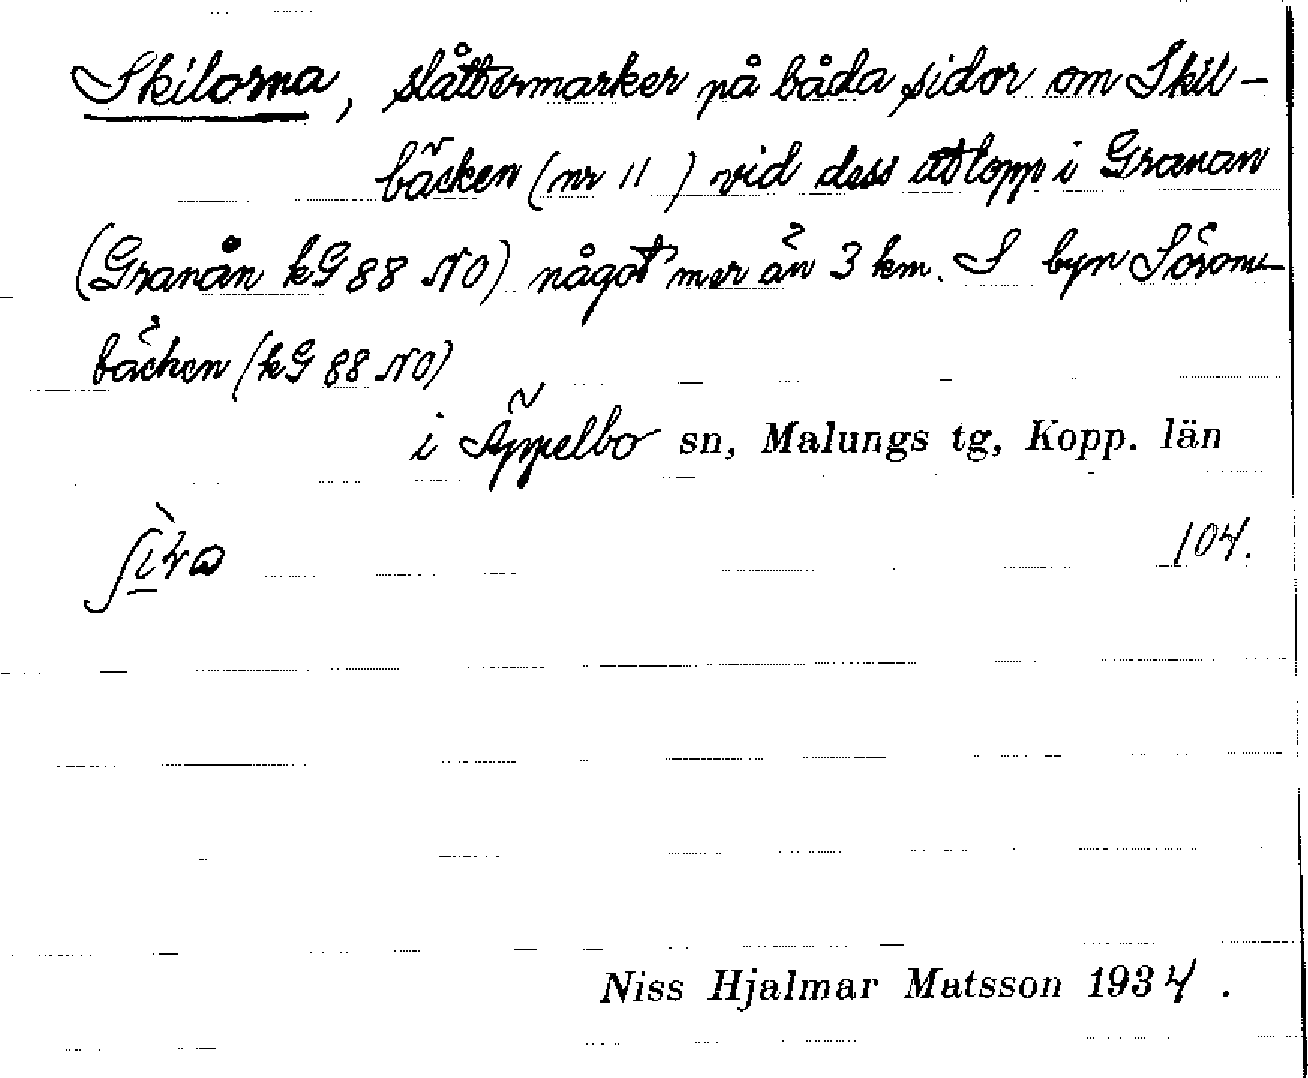 Skilorna, slåttermarker på båda sidor om Skil-
bäcken (nr 11 ) vid dess utlopp i Granan
(Granån kG 88 NO) något mer än 3 km. S byn
bäcken (kG 88 NO)
i Äppelbo sn, Malungs tg, Kopp. län
104.
Niss Hjalmar Matsson 1934 .